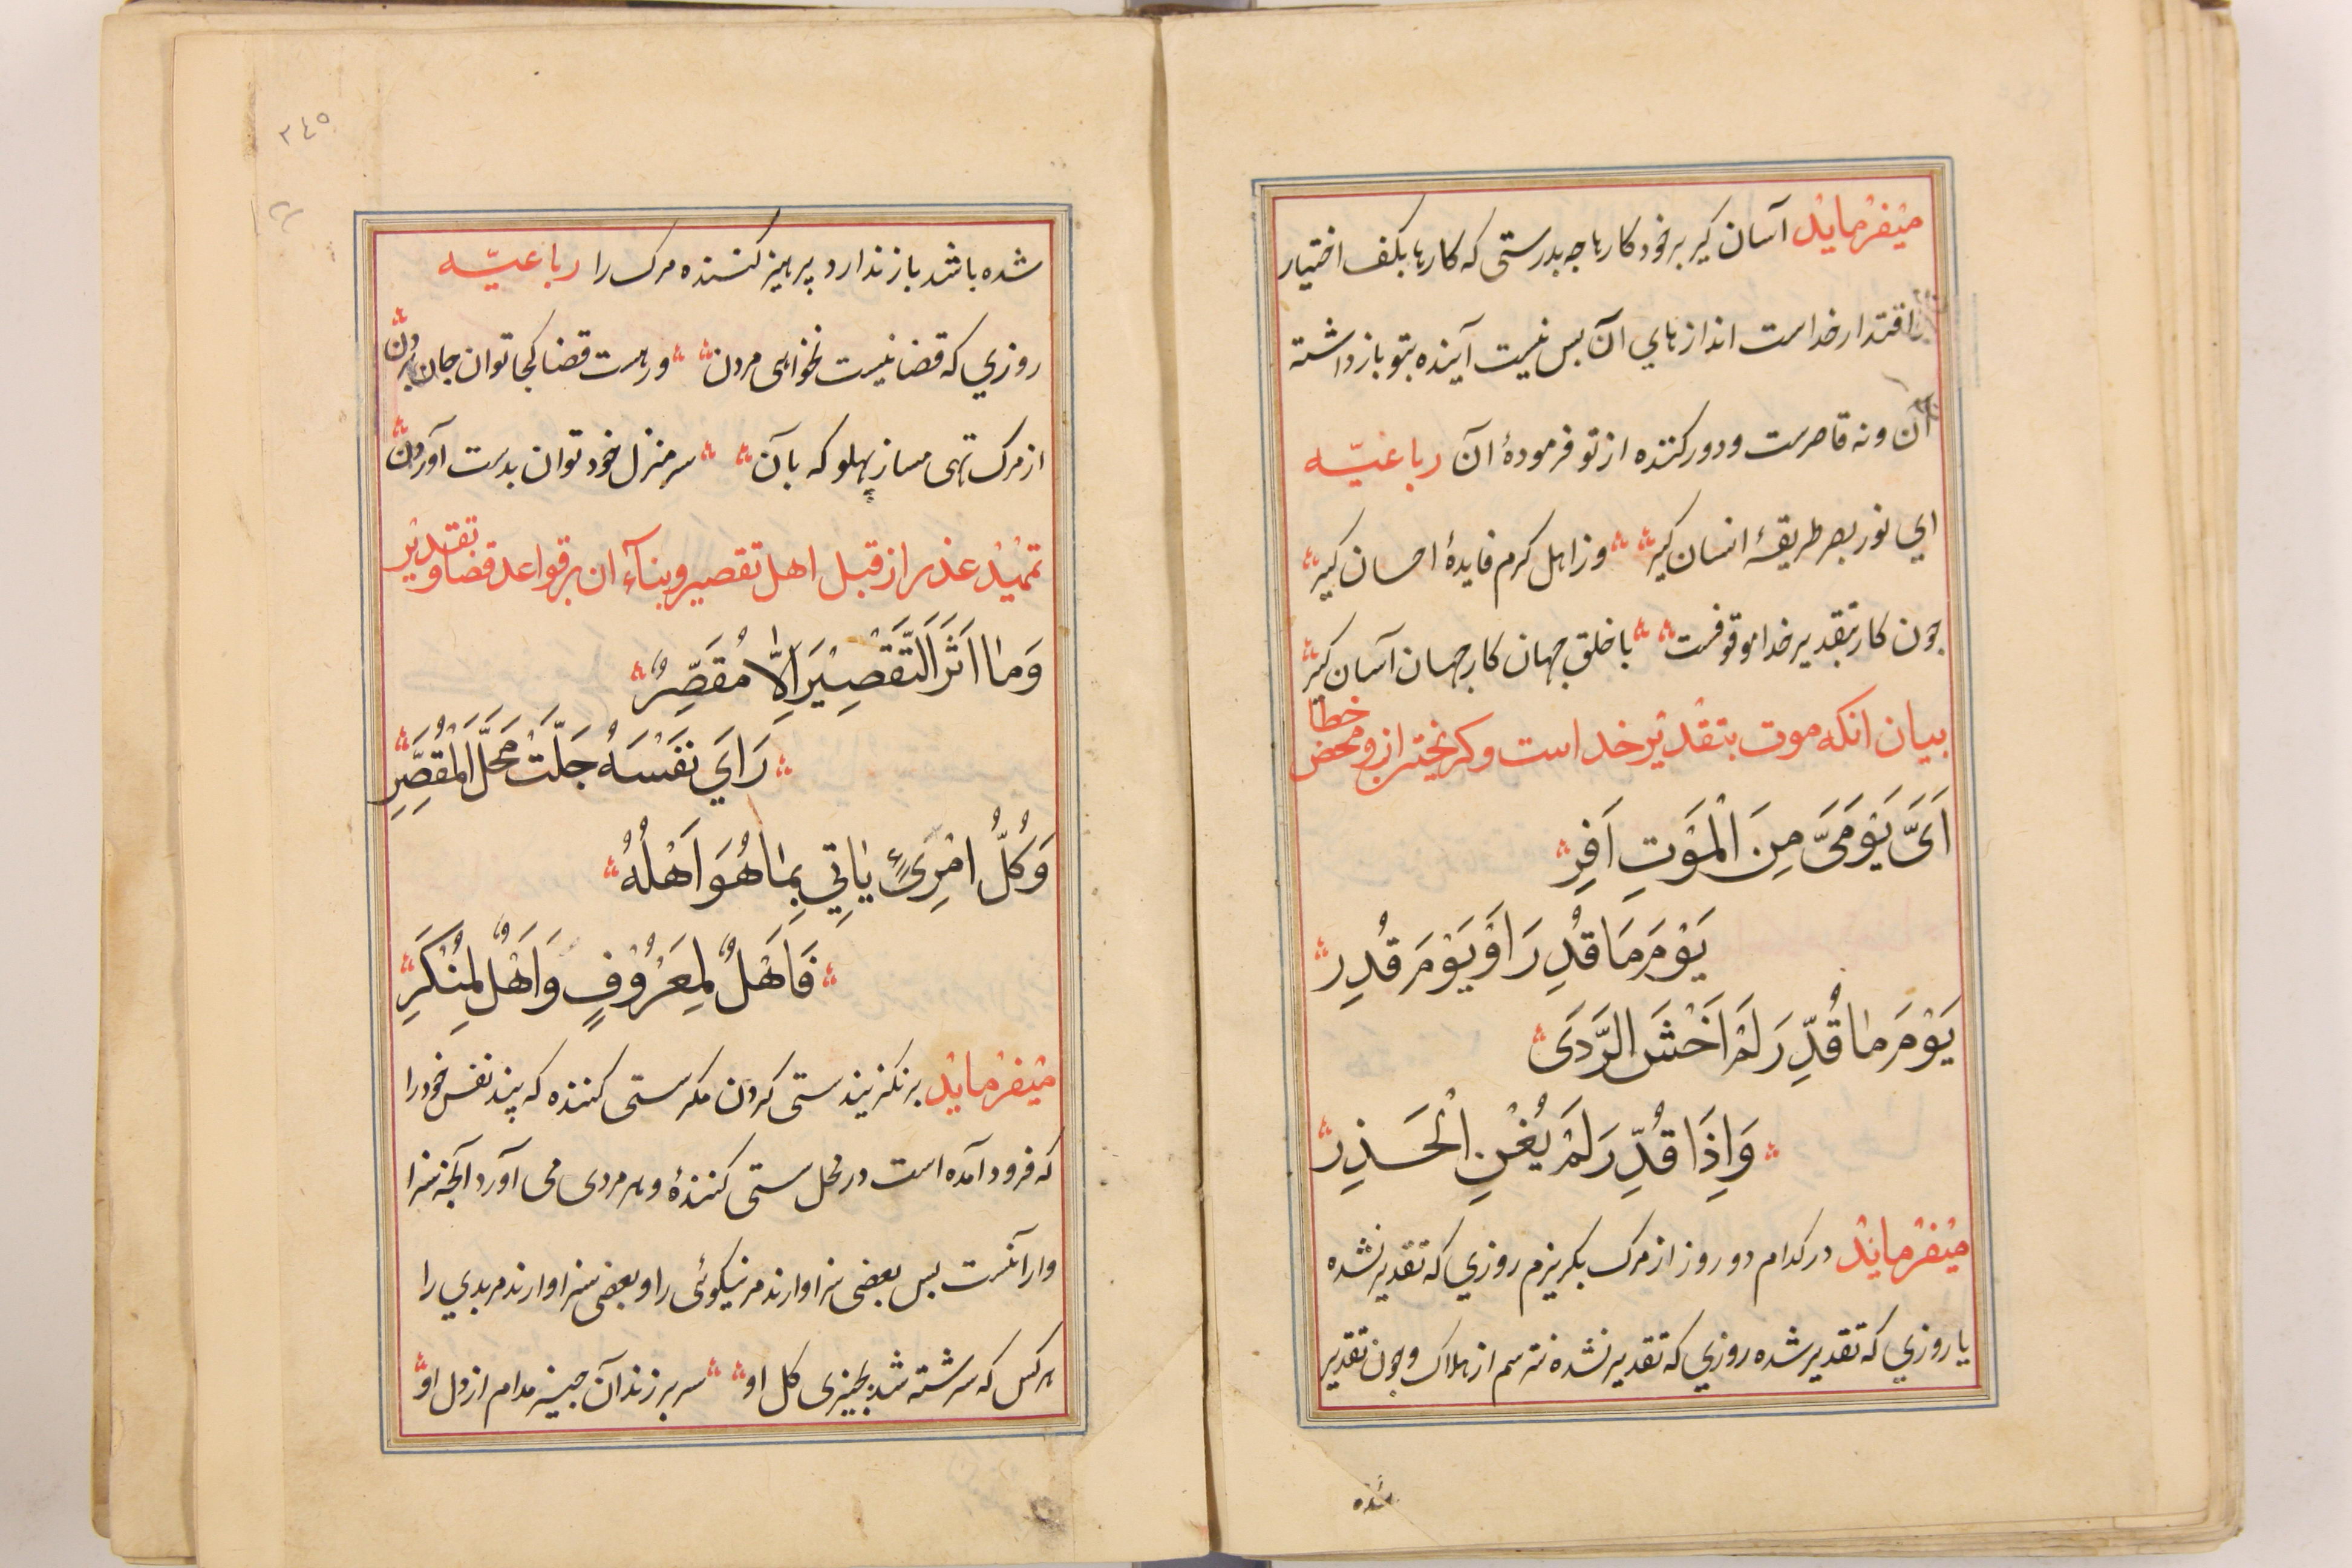 میفرماید آسان کیر بر خود کارها چه بدرستی که کارها بکف اختیار
اقتدار خداست اندازهاي آن بس نیست آینده بتو باز داشته
آن و نه قاصرست و دور کننده از تو فرمودهٔ آن رباعیّه
اي نور بصر طریقهٔ انسان کیر وز اهل کرم فایدهٔ احسان کیر
جون کار بتقدیر خدا موقوفست با خلق جهان کار جهان آسان کیر
بیان انکه موت بتقدیر خداست و کریختن ازو محض خطا
اَیَّ یَوْمَیَّ مِنَ الْمَوْتِ اَفِر
یَوْمَ مَا قُدِرَ اَوْ یَوْمَ قُدِر
یَوْمَ مٰا قُدِّرَ لَمْ اَخْشَ الرَّدَی
وَاِذَا قُدِّرَ لَمْ یُغْنِ الْحَذِر
میفرماید در کدام دو روز از مرک بکریزم روزي که تقدیر نشده
یا روزي که تقدیر شده روزي که تقدیر نشده نترسم از هلاک و جون تقدیر
شده
۳۴۵
شده باشد باز ندارد پرهیز کننده مرک را رباعیّه
روزي که قضا نیست نخواهی مردن ور هست قضا کجا توان جان بردن
از مرک تهی مساز پهلو که بآن سر منزل خود توان بدست آوردن
تمهید عذر از قبل اهل تقصیر و بناء آن بر قواعد قضا و تقدیر
وَمٰا اَثَرَ التَّقْصِیْرَ اِلّٰا مُقَصِّرٌ
رَاَي نَفْسَهُ حَلَّتْ مَحَلَّ الْمُقَصِّرِ
وَکُلُّ امْرِیءٍ یٰاتِي بِمٰا هُوَ اَهْلُهُ
فَاَهْلٌ لِمَعْرُوْفٍ وَاَهْلٌ لِمُنْکَرِ
میفرماید برنکزیند سستی کردن مکر سستی کننده که بیند نفس خود را
که فرود آمده است در محل سستی کنندهٔ و هر مردی می آورد آنجه سزا
وار آنست بس بعضی سزاوارند مر نیکوئی را و بعضی سزاوارند مر بدي را
هر کس که سرشته شد بجیزی کل او سر بر زند آن جیز مدام از دل او